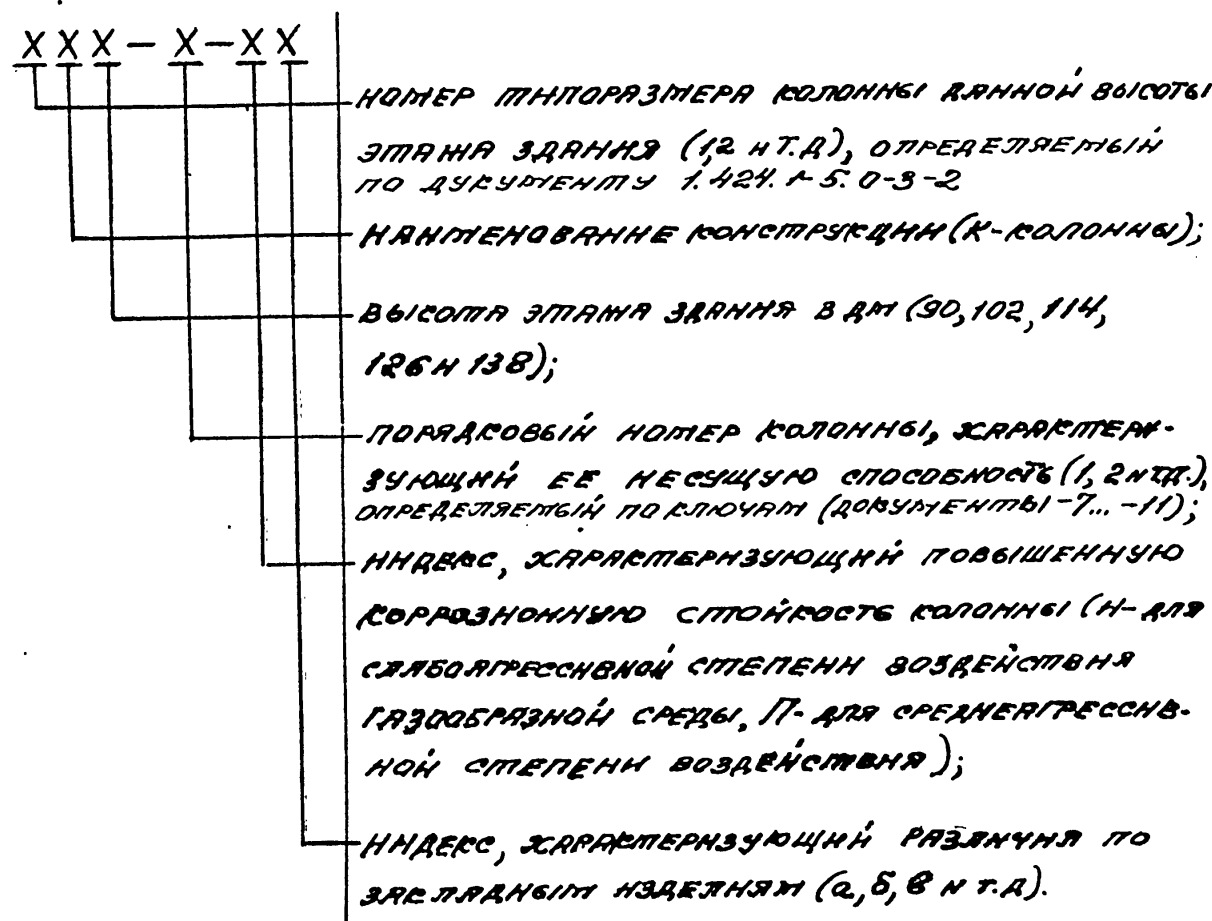 ХХХ-Х-ХХ
НОМЕР ТИПОРАЗМЕРА КОЛОННЫ ДАННОЙ ВЫСОТЫ
ЭТАЖА ЗДАНИЯ (1,2 и т.д), ОПРЕДЕЛЯЕМЫЙ
ПО ДУКУМЕНТУ 1.424.1-5.0-3-2
НАИМЕНОВАНИЕ КОНСТРУКЦИИ (К-КОЛОННЫ);
ВЫСОТА ЭТАЖА ЗДАНИЯ В ДМ (90, 102, 114,
126 и 138);
ПОРЯДКОВЫЙ НОМЕР КОЛОННЫ, ХАРАКТЕРИ-
ЗУЮЩИЙ ЕЕ НЕСУЩУЮ СПОСОБНОСТЬ (1, 2 и т.д.),
ОПРЕДЕЛЯЕМЫЙ ПО КЛЮЧАМ (ДОКУМЕНТЫ -7... -11);
ИНДЕКС, ХАРАКТЕРИЗУЮЩИЙ ПОВЫШЕННУЮ
КОРРОЗИОННУЮ СТОЙКОСТЬ КОЛОННЫ (Н- ДЛЯ
СЛАБОАГРЕССИВНОЙ СТЕПЕНИ ВОЗДЕЙСТВИЯ
ГАЗООБРАЗНОЙ СРЕДЫ, П- ДЛЯ СРЕДНЕАГРЕССИВ-
НОЙ СТЕПЕНИ ВОЗДЕЙСТВИЯ);
ИНДЕКС, ХАРАКТЕРИЗУЮЩИЙ РАЗЛИЧИЯ ПО
ЗАКЛАДНЫМ ИЗДЕЛИЯМ (а, б, в и т.д).